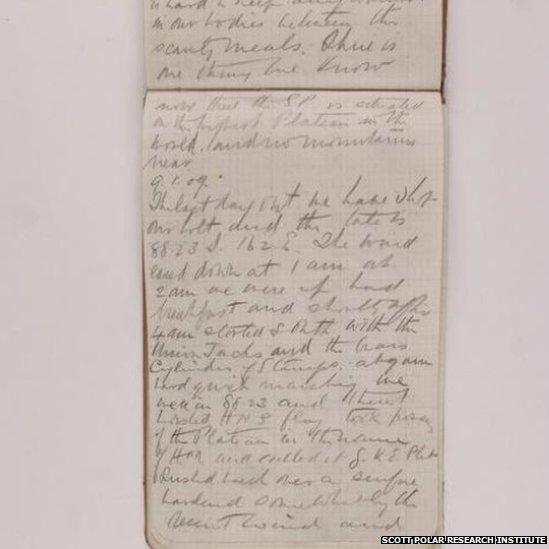 in our bodies between the
scanty meals. There is
one thing we know
now that the S P is situated
on the highest Plateau in the
world, and no mountains
near
9.1.09.
The last day out we have shot
our bolt and the late is
88.23 S. 162 E. The wind
eased down at 1 am at
2 am we were up had
breakfast and shortly after
4 am started South with the
Union Jacks and the brass
Cylinder of Stamps. at 9 am
hard quick marching we
were in 88.23 and there
hoisted H M S flag took
of the Plateau in the name
of HM and called it K E Plat
Rushed back over a surface
hardened somewhat by the
recent wind and
SCOTT POLAR RESEARCH INSTITUTE